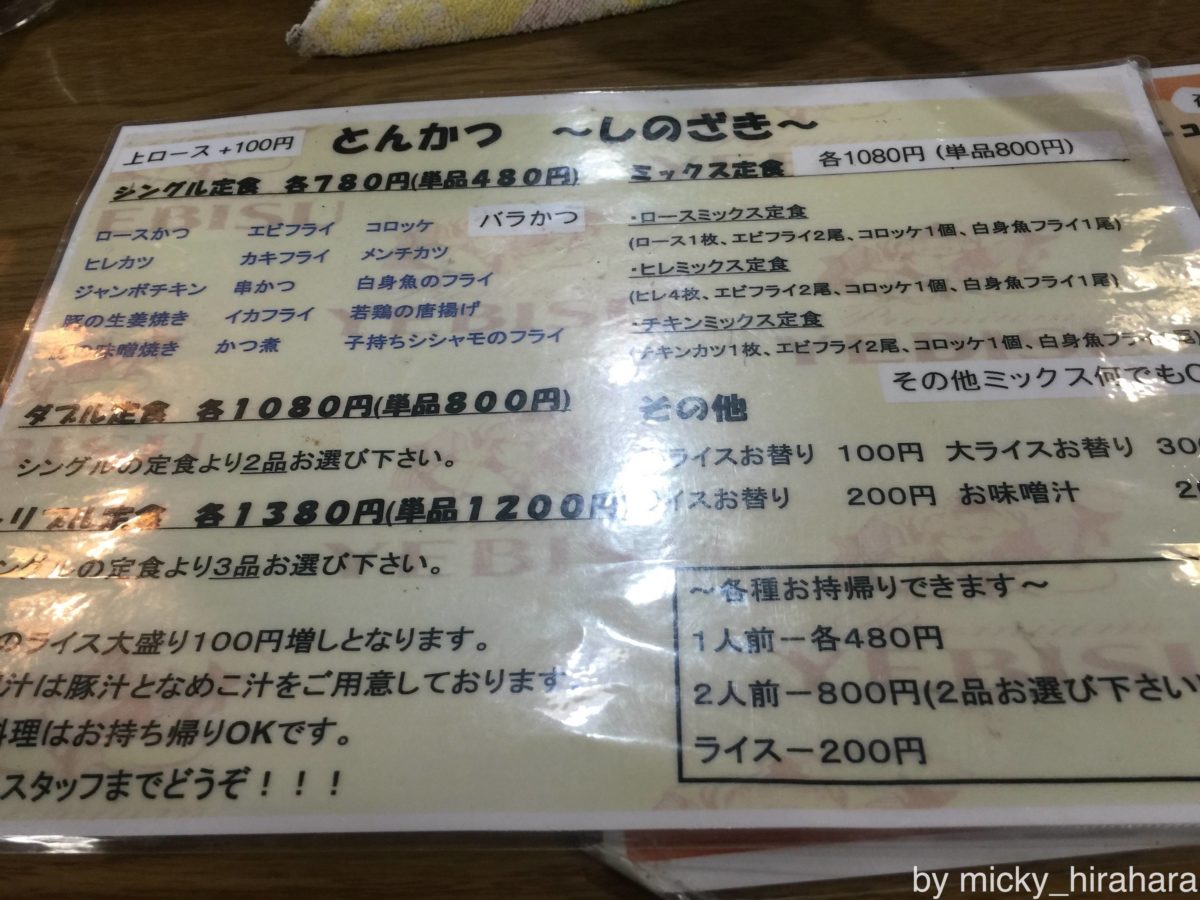 上ロース +100円
とんかつ ～しのざき～
シングル定食 各780円(単品480円)
ロースかつ エビフライ コロッケ バラかつ
ヒレカツ カキフライ メンチカツ
ジャンボチキン 串かつ 白身魚のフライ
豚の生姜焼き イカフライ 若鶏の唐揚げ
味噌焼き かつ煮 子持ちシシャモのフライ
ダブル定食 各1080円(単品800円)
シングルの定食より2品お選び下さい。
リプル定食 各1380円(単品1200円)
ングルの定食より3品お選び下さい。
のライス大盛り100円増しとなります。
汁は豚汁となめこ汁をご用意しております。
料理はお持ち帰りOKです。
スタッフまでどうぞ！！！
ミックス定食 各1080円 (単品800円)
・ロースミックス定食
(ロース1枚、エビフライ2尾、コロッケ1個、白身魚フライ1尾)
・ヒレミックス定食
(ヒレ4枚、エビフライ2尾、コロッケ1個、白身魚フライ1尾)
・チキンミックス定食
(チキンカツ1枚、エビフライ2尾、コロッケ1個、白身魚フライ1尾)
その他ミックス何でもO
その他
ライスお替り 100円 大ライスお替り 300
イスお替り 200円 お味噌汁
～各種お持帰りできます～
1人前－各480円
2人前－800円(2品お選び下さい)
ライス－200円
YEBISU
by micky_hirahara